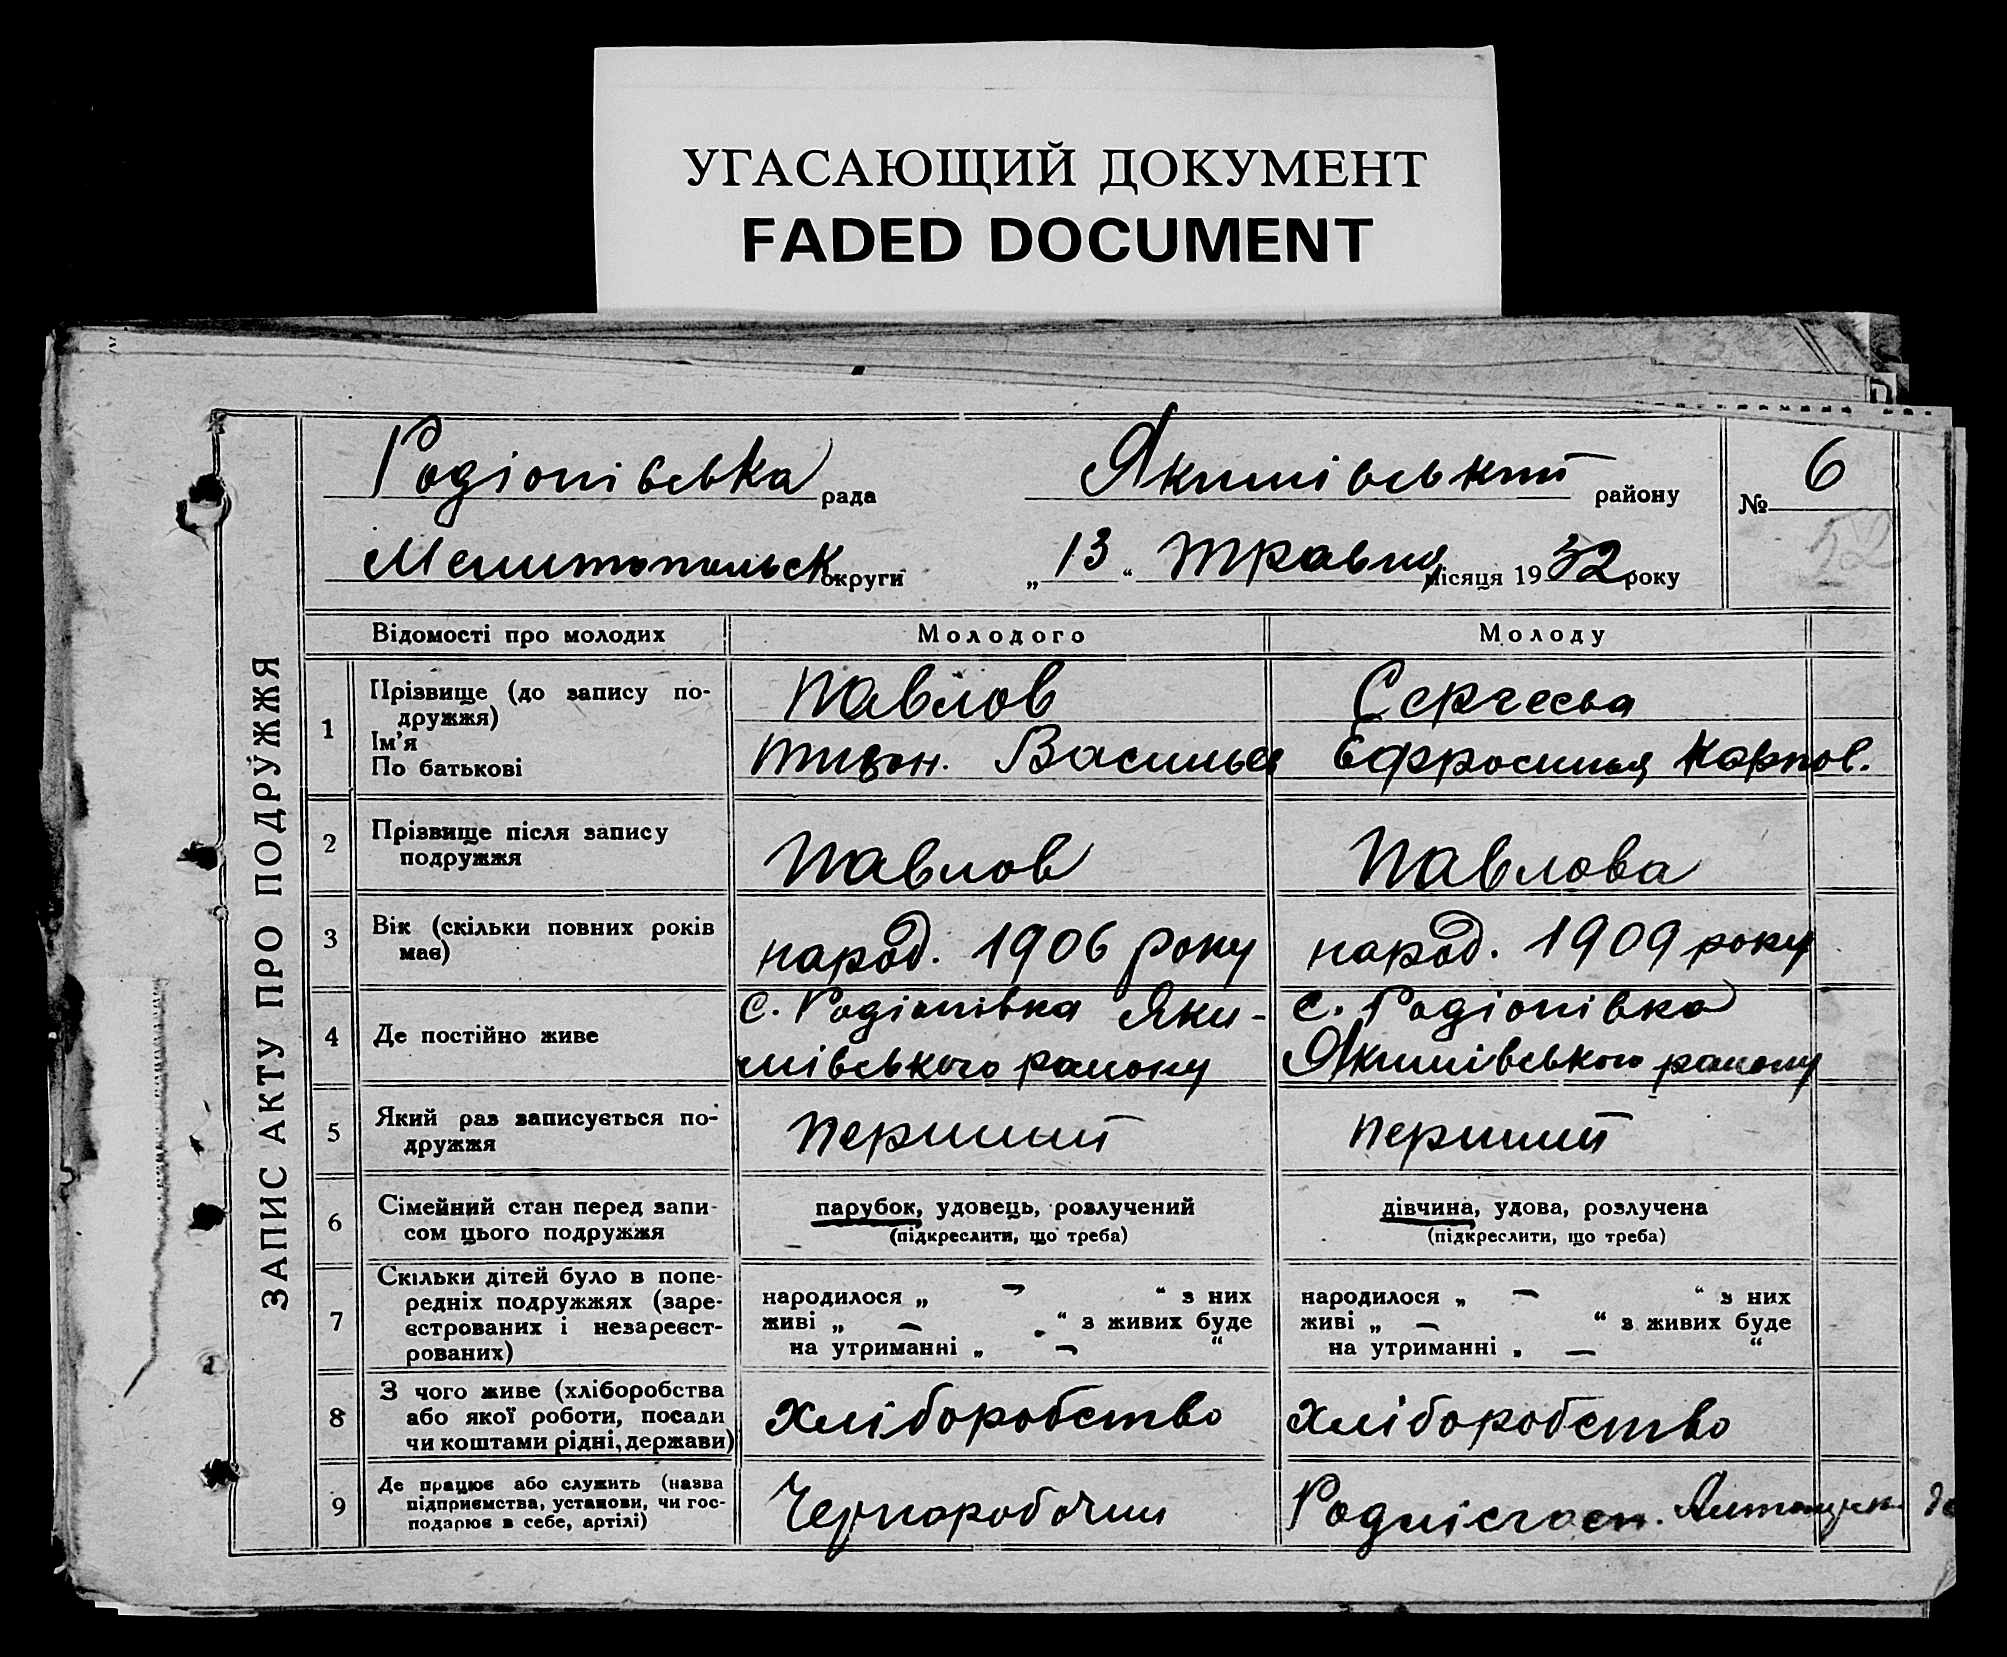 УГАСАЮЩИЙ ДОКУМЕНТ
FADED DOCUMENT
ЗАПИС АКТУ ПРО ПОДРУЖЖЯ
Родіонівська рада Якимівський району № 6
Мелитопольск округи „ 13 “ травня місяця 1932 року
Відомості про молодих Молодого Молоду
1 Прізвище (до запису по-
дружжя)
Ім'я
По батькові
Павлов
Тихон. Василье
Сергеева
Ефросинья Карпов.
2 Прізвище після запису
подружжя
Павлов
Павлова
3 Вік (скільки повних років
має)
народ. 1906 року
народ. 1909 року
4 Де постійно живе
с. Родіонівка Яки-
мівського району
с. Родіонівка
Якимівського району
5 Який раз записується по-
дружжя
перший
перший
6 Сімейний стан перед запи-
сом цього подружжя
парубок, удовець, розлучений
(підкреслити, що треба)
дівчина, удова, розлучена
(підкреслити, що треба)
7 Скільки дітей було в попе-
редніх подружжях (заре-
єстрованих і незареєст-
рованих)
народилося „ — “ з них
живі „ — “ з живих буде
на утриманні „ — “
народилося „ — “ з них
живі „ — “ з живих буде
на утриманні „ — “
8 З чого живе (хліборобства
або якої роботи, посади
чи коштами рідні, держави)
хліборобство
хліборобство
9 Де працює або служить (назва
підприємства, установи, чи гос-
подарює в себе, артілі)
Черноробочий